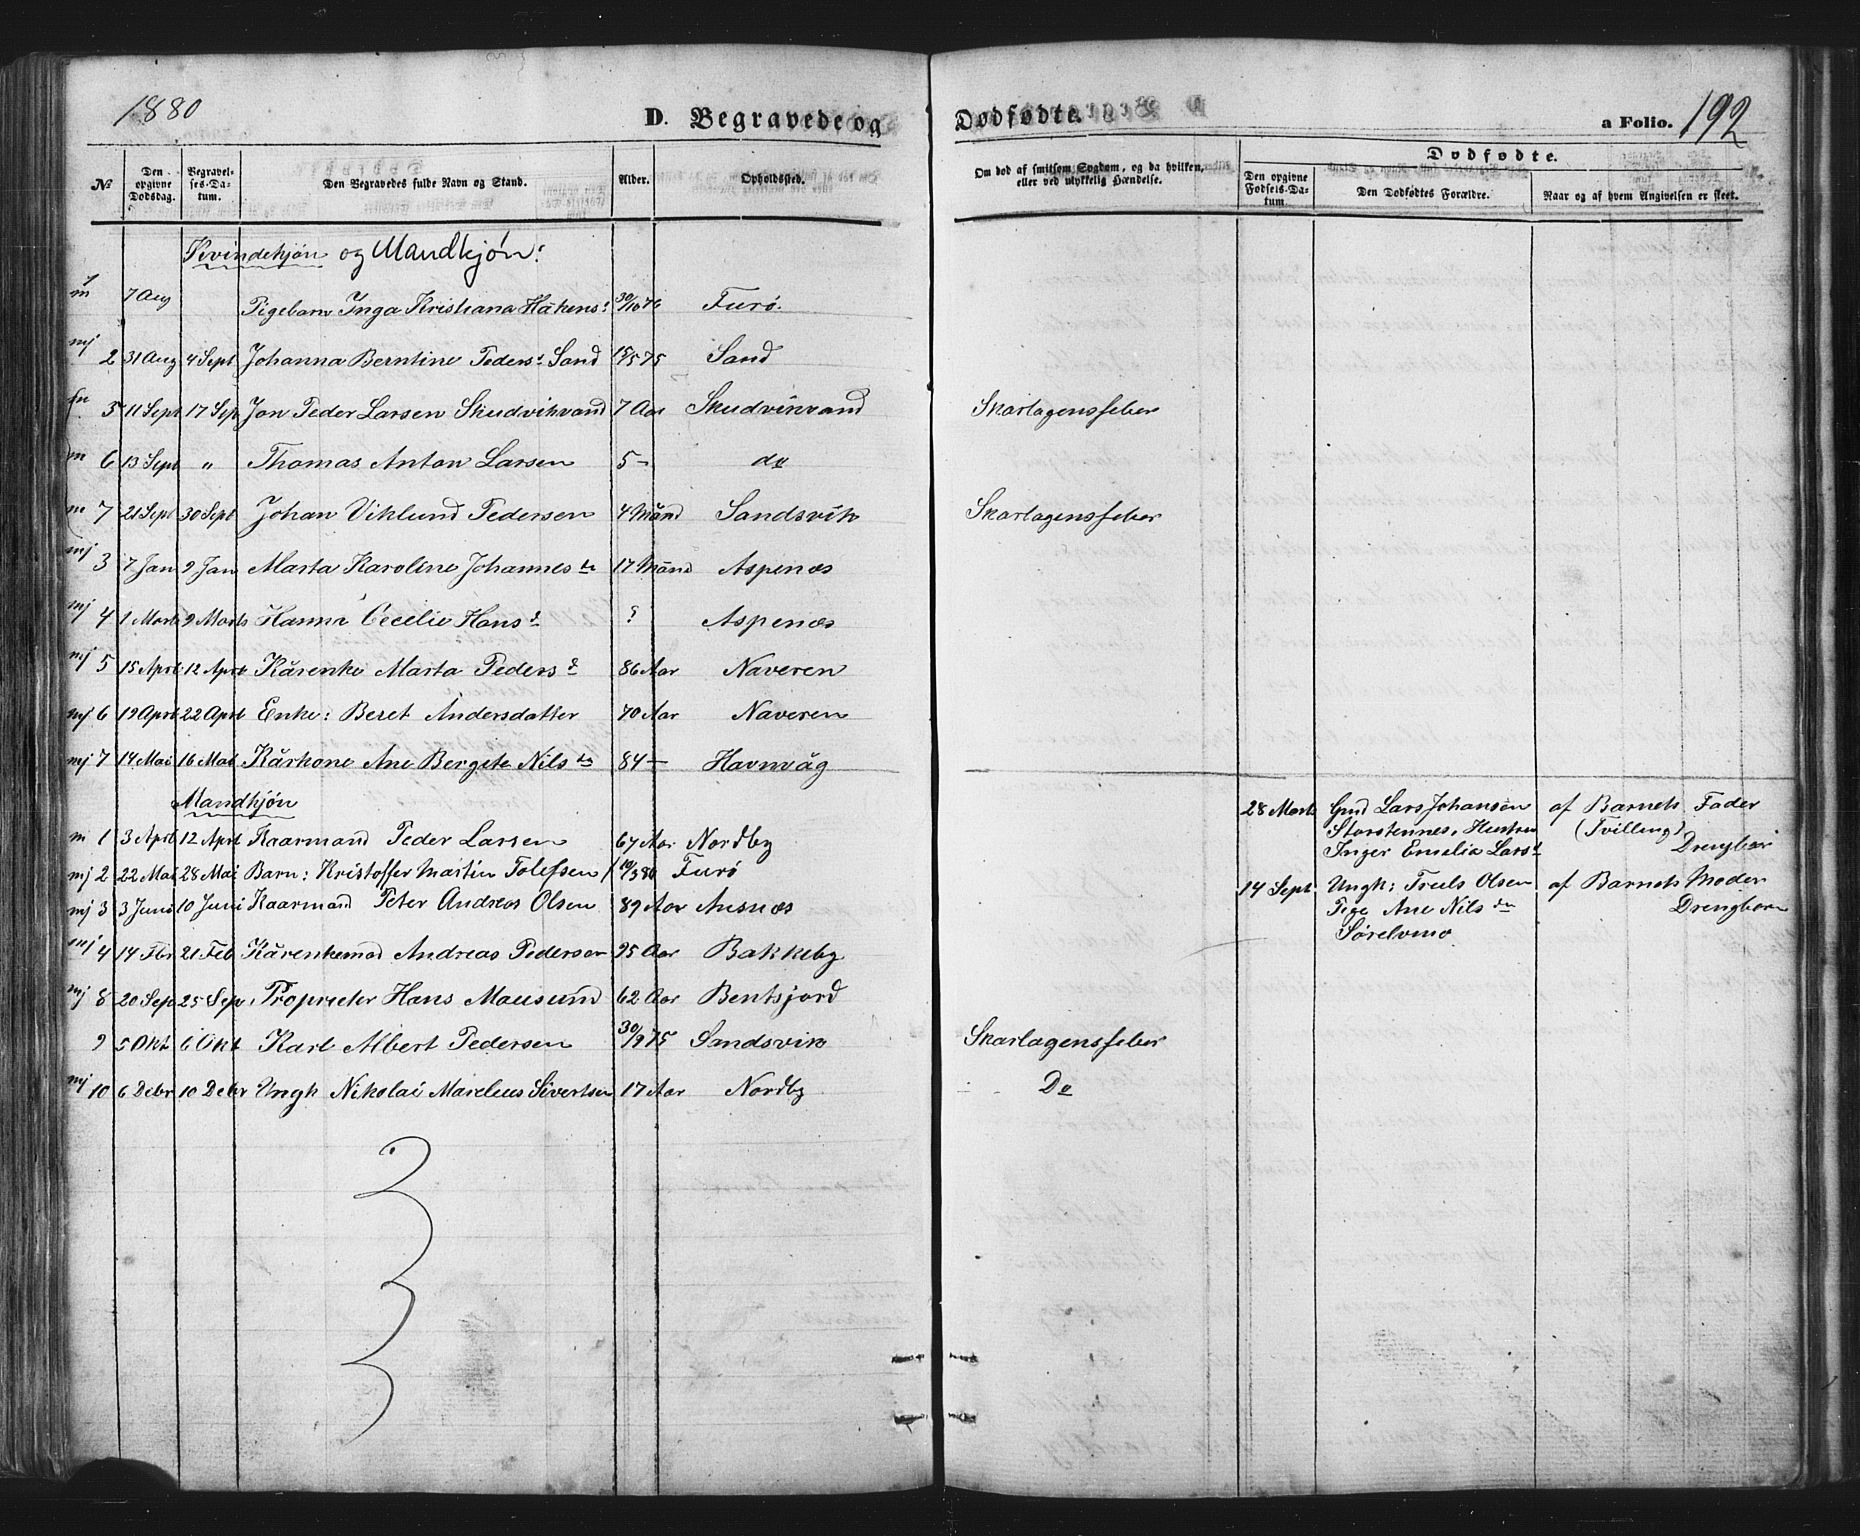 1880
D. Begravede og Dødfødte.
a Folio. 192
No
Den opgivne Dødsdag.
Begravelses-Datum.
Den Begravedes fulde Navn og Stand.
Alder.
Opholdssted.
Om død af smitsom Sygdom, og da hvilken, eller ved ulykkelig Hændelse.
Dødfødte.
Den opgivne Fødsels-Datum.
Den Dødfødtes Forældre.
Naar og af hvem Angivelsen er skeet.
Kvindekjøn og Mandkjøn:
1 7 Aug Pigebarn Inga Kristiana Håkens: 30/10 76 Furø.
mj 2 31 Aug 4 Sept Johanna Berntine Peders: Sand 15/5 75 Sand
5 11 Sept 17 Sep Jon Peder Larsen Skudvikvand 7 Aar Skudvikvand Skarlagensfeber
m 6 13 Sept " Thomas Anton Larsen 5 - do
m 7 21 Sept 30 Sept Johan Viklund Pedersen 4 Månd Sandsvik Skarlagensfeber
mj 3 7 Jan 9 Jan Marta Karoline Johannes dr 17 Månd Aspenæs
mj 4 1 Marts 9 Marts Hanna Cecilie Hans d ? Aspenæs
mj 5 15 Aprl 12 Aprl Kårenke Marta Peders d 86 Aar Naveren
mj 6 19 Aprl 22 Aprl Enke: Beret Andersdatter 70 Aar Naveren
mj 7 14 Mai 16 Mai Kårkone Ane Bergite Nils dr 84 — Havnvåg
Mandkjøn
28 Marts Gmd Lars Johansen af Barnets Fader
Storstennes, Hustru (Tvilling)
Inger Emelia Lars d Drengbarn
m 1 3 Aprl 12 Aprl Kaarmand Peder Larsen 67 Aar Nordby
mj 2 22 Mai 28 Mai Barn: Kristoffer Martin Tolefsen 10/3 80 Furø
14 Sept Ungk: Truls Olsen af Barnets Moder
Pige Ane Nils dr Drengbarn
Sørelvmo
mj 3 3 Juni 10 Juni Kaarmand Peter Andreas Olsen 89 Aar Ansnæs
mj 4 14 Fbr 21 Feb Kårenkemad Andreas Pedersen 95 Aar Bakkeby
mj 8 20 Sep 25 Sep Proprietær Hans Mausund 62 Aar Bentsjord
9 5 Okt 6 Okt Karl Albert Pedersen 30/9 75 Sandsvik Skarlagensfeber
mj 10 6 Debr 10 Debr Ungk Nikolai Marelius Sivertsen 17 Aar Nordby Do